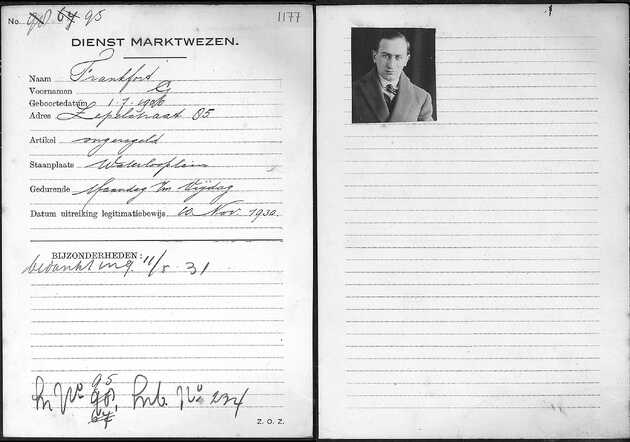 No. 98 64 95 1177
DIENST MARKTWEZEN.
Naam Frankfort
Voornamen G
Geboortedatum 1.7.1906
Adres Lepelstraat 85
Artikel ongeregeld
Staanplaats Waterlooplein
Gedurende Maandag t/m Vrijdag
Datum uitreiking legitimatiebewijs 10 Nov. 1930.
BIJZONDERHEDEN:
bedankt ing. 11/5 31
95
In No 98, Inb. No 224
64
Z. O. Z.